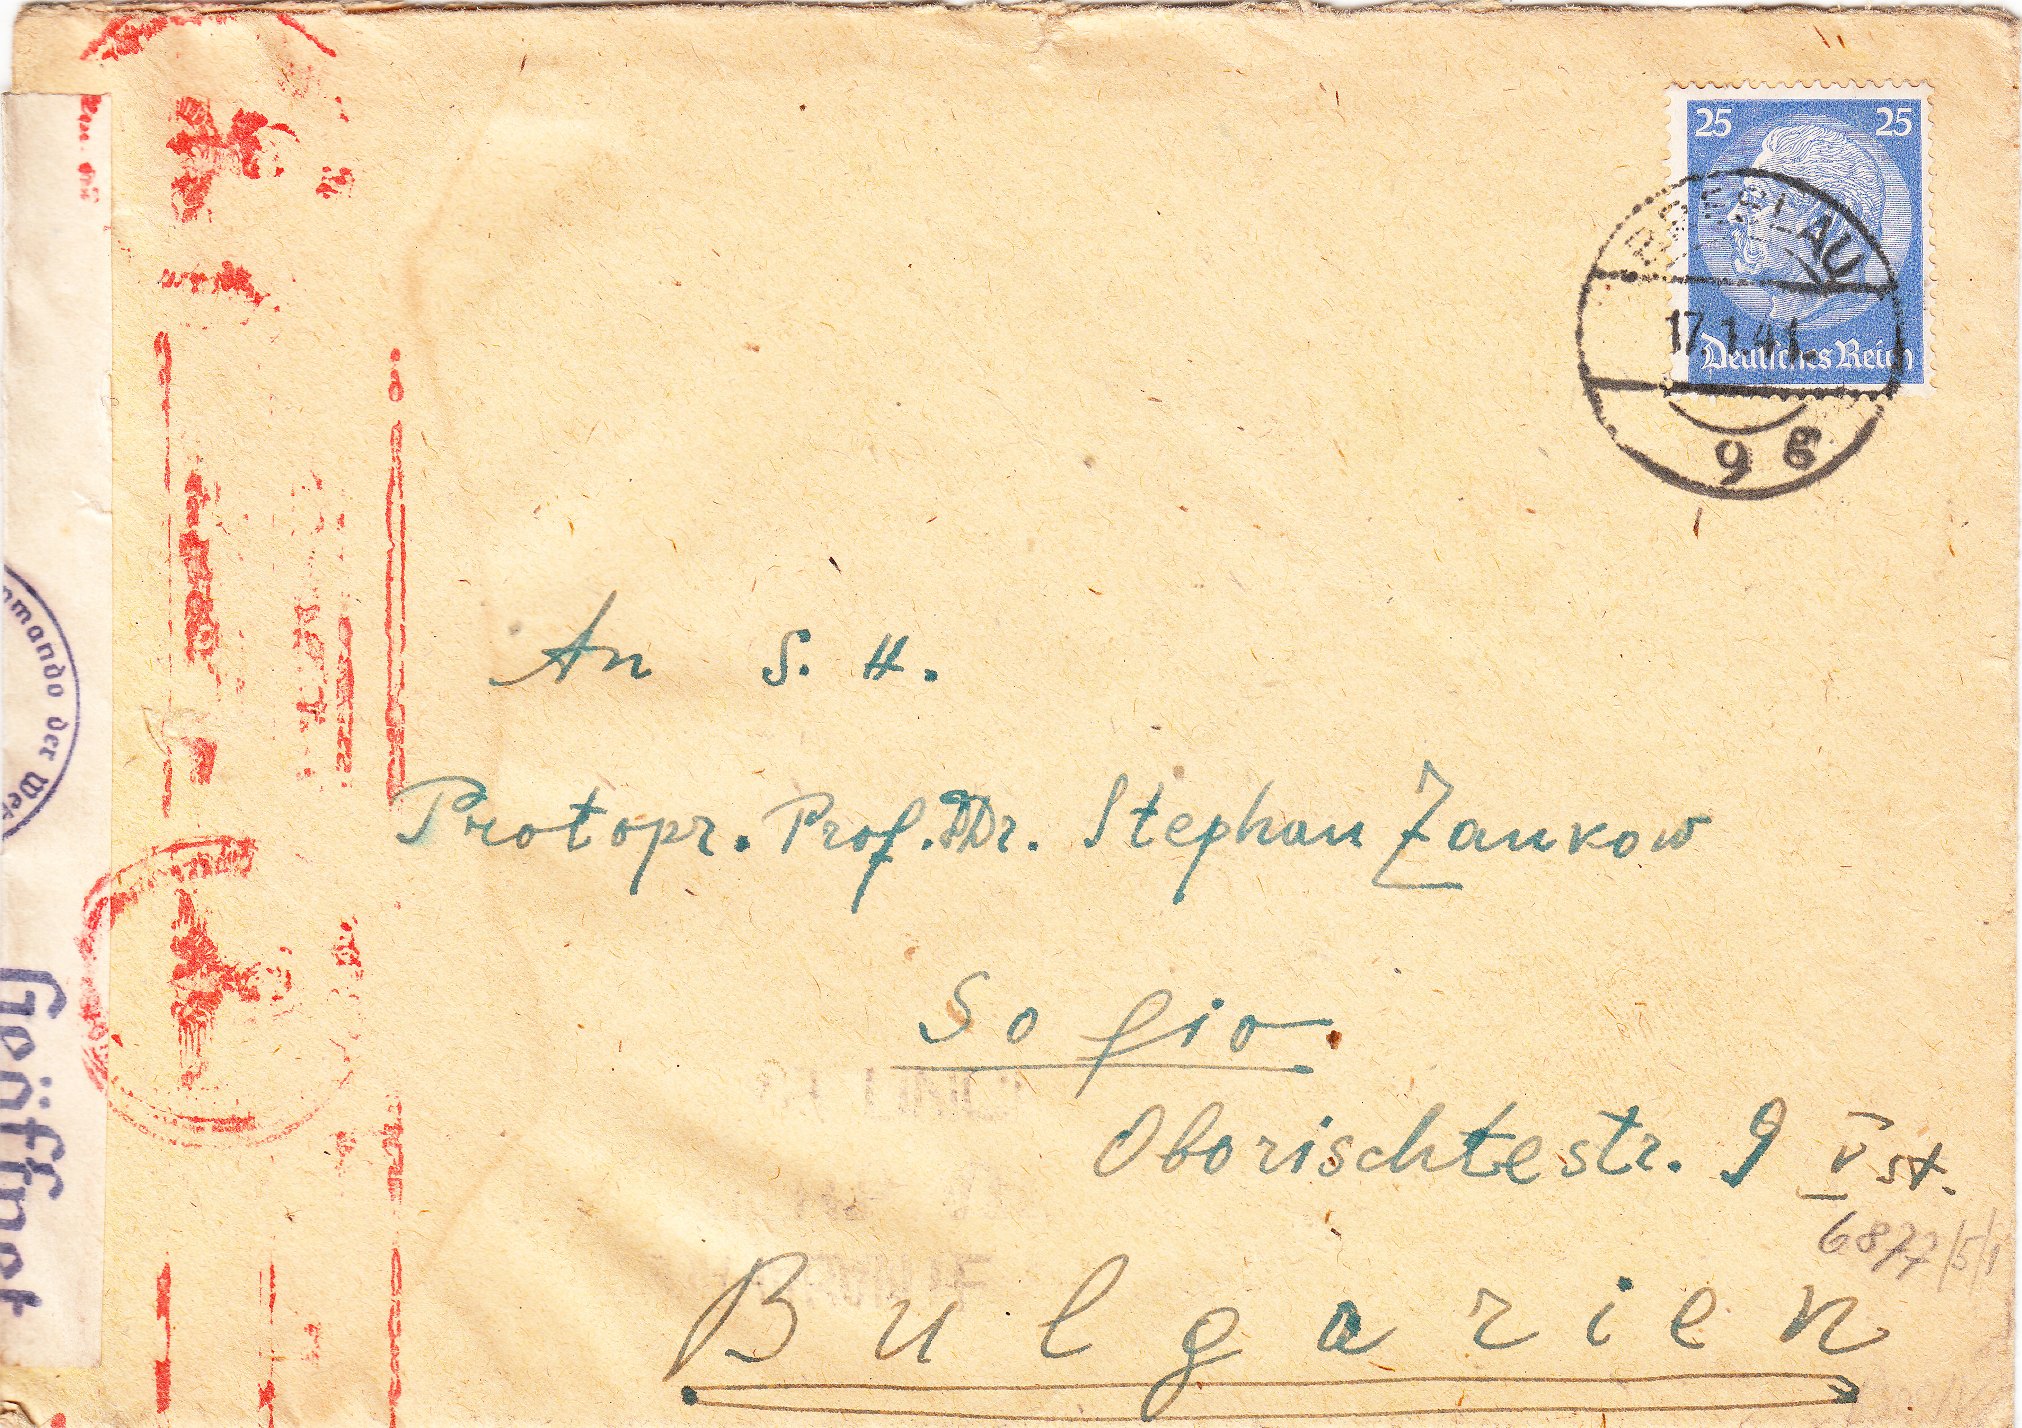 25 25
BRESLAU
17.1.41
Deutsches Reich
9 g
mmando der We
Geöffnet
An S. H.
Protopr. Prof. DDr. Stephan Zankow
Sofia
Oborischtestr. 9 V st.
6877/5/1
Bulgarien